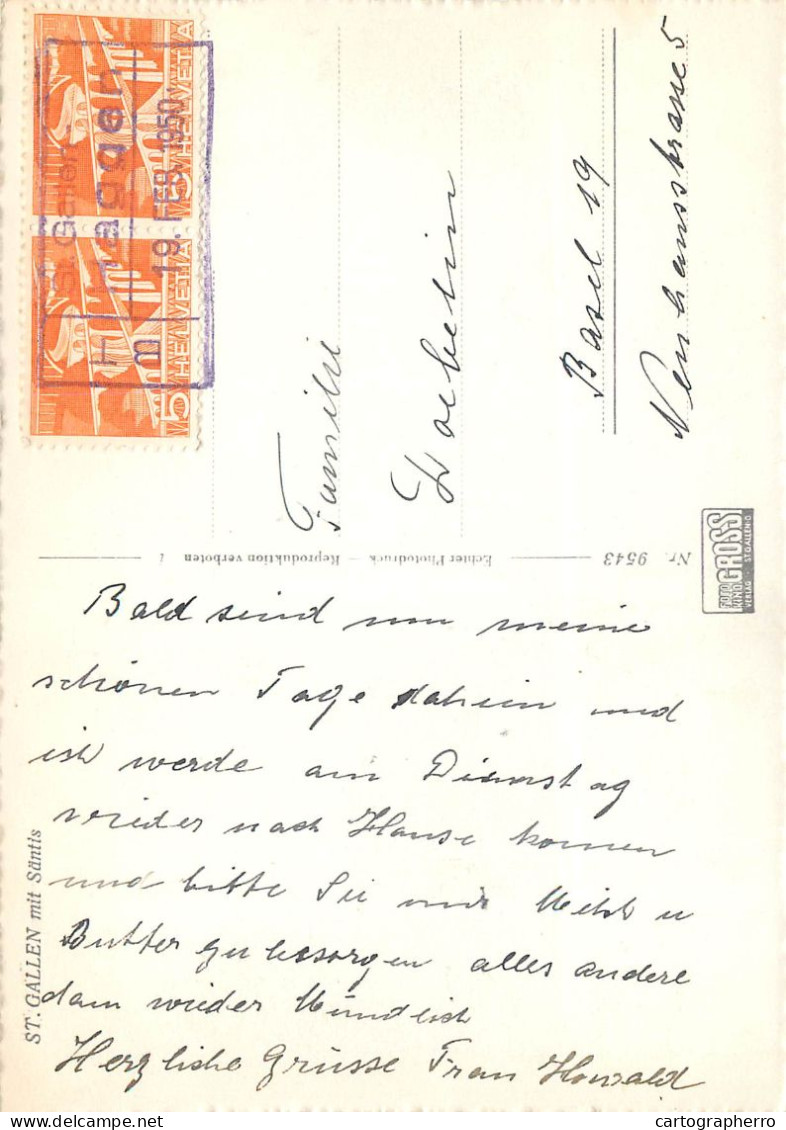 HELVETIA 5
HELVETIA 5
St. Gallen
Haggen
m 19. FEB. 1950
Familie
Basel 19
Neuhausstrasse 5
Nr. 9543 Echter Photodruck — Reproduktion verboten 1
FOTO GROSS
VERLAG ST. GALLEN-O
Bald sind nun meine
schönen Tage dahein und
ich werde am Dienstag
wieder nach Hause kommen
und bitte Sie mir Milch u
Butter zu besorgen alles andere
dann wieder Mündlich
Herzliche Grüsse Frau Howald
ST. GALLEN mit Säntis
cartographerro